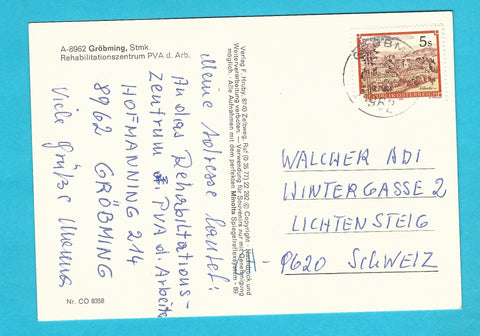 A-8962 Gröbming, Stmk.
Rehabilitationszentrum PVA d. Arb.
Meine Adresse lautet:
An das Rehabilitations-
zentrum PVA d. Arbeiter
HOFMANNING 214
8962 GRÖBMING
Viele Grüße
Nr. CO 8358
Verlag F. Hruby, 8740 Zeltweg, Ruf (0 35 77) 22 292 © Copyright - Nachdruck und
Weiterverarbeitung verboten. — Verwendung für Souvenirs nur mit Genehmigung
möglich - Alle Aufnahmen mit dem perfekten Minolta Spiegelreflexsystem - 89
5 S
REPUBLIK ÖSTERREICH
WALCHER ADI
WINTERGASSE 2
LICHTENSTEIG
9620 SCHWEIZ